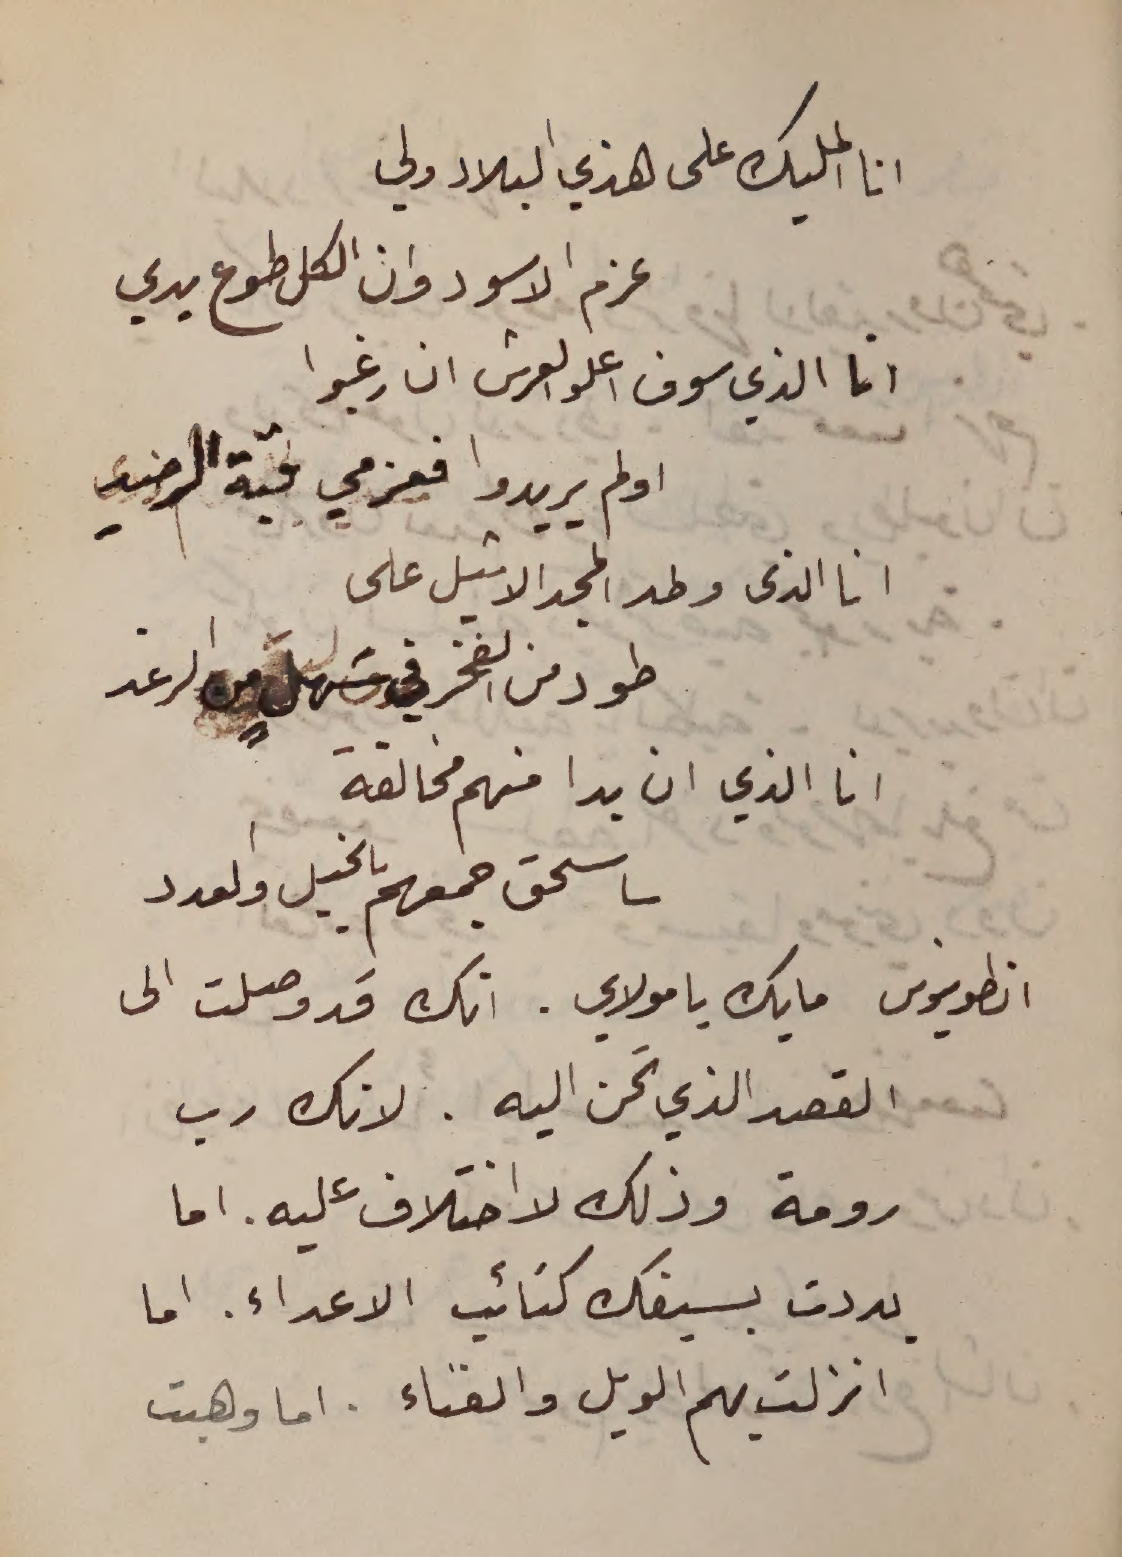 انا المليك على هذي البلاد ولي
عزم الاسود وان الكل طوع يدي
انا الذي سوف اعلو العرش ان رغبوا
اولم يريدوا فعزمي
انا الذى وطد المجد الاثيل على
طود من الفخر في سهل من الرغد
انا الذي ان بدا منهم مخالفة
ساسحق جمعهم بالخيل والعدد
انطونيوس مابك يا مولاي . انك قد وصلت الى
القصد الذي نحن اليه . لانك رب
رومة وذلك لا اختلاف عليه . اما
بددت بسيفك كتائب الاعداء . اما
انزلت بهم الويل والفناء . اما وهبت